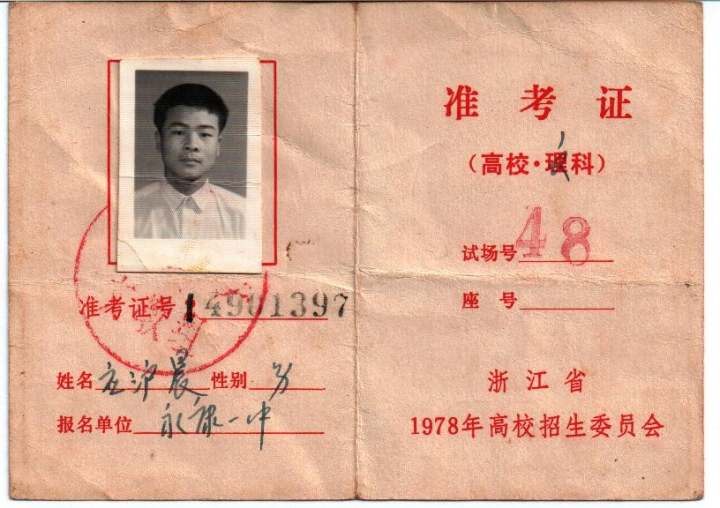 准考证号
姓名 应沪晨 性别 男
报名单位 永康一中
准考证
(高校·理科)
试场号 48
座号
浙江省
1978年高校招生委员会